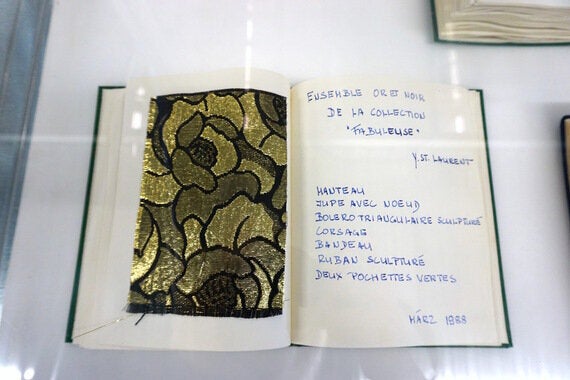 ENSEMBLE OR ET NOIR
DE LA COLLECTION
"FABULEUSE"
Y. ST. LAURENT
MANTEAU
JUPE AVEC NOEUD
BOLERO TRIANGULAIRE SCULPTURÉ
CORSAGE
BANDEAU
RUBAN SCULPTURÉ
DEUX POCHETTES VERTES
MÄRZ 1988